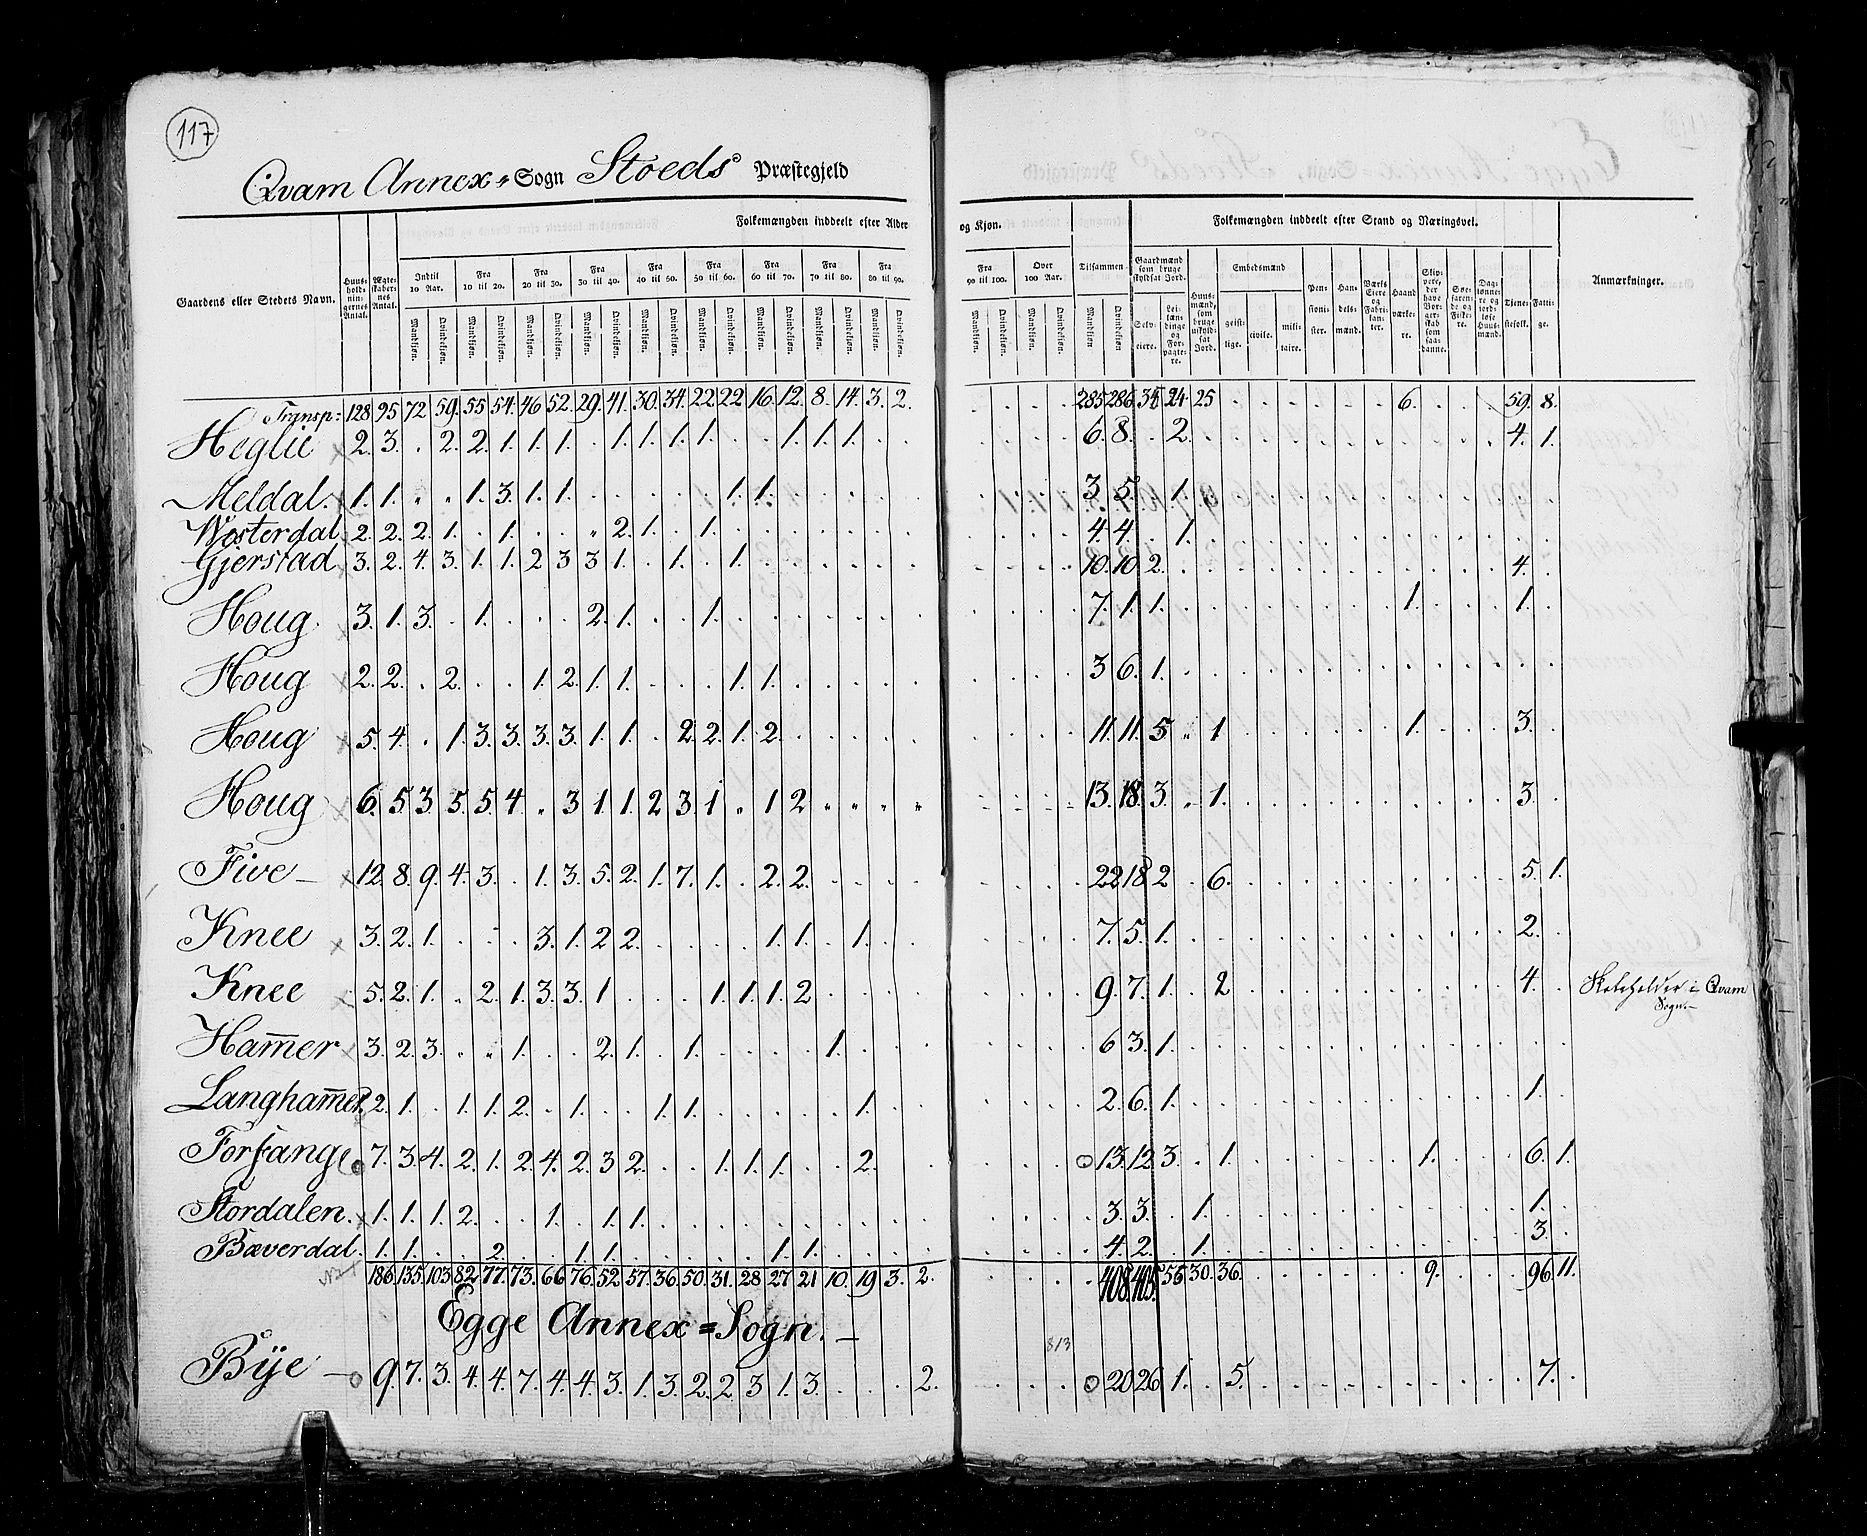 117
Qvam Annex-Sogn Stoeds Præstegjeld
Gaardens eller Stedets Navn.
Huusholdningernes Antal.
Ægteskabernes Antal.
Folkemængden inddeelt efter Alder og Kjøn.
Indtil 10 Aar. Fra 10 til 20. Fra 20 til 30. Fra 30 til 40. Fra 40 til 50. Fra 50 til 60. Fra 60 til 70. Fra 70 til 80. Fra 80 til 90. Fra 90 til 100. Over 100 Aar. Tilsammen
Mandkjøn. Qvindekjøn. Mandkjøn. Qvindekjøn. Mandkjøn. Qvindekjøn. Mandkjøn. Qvindekjøn. Mandkjøn. Qvindekjøn. Mandkjøn. Qvindekjøn. Mandkjøn. Qvindekjøn. Mandkjøn. Qvindekjøn. Mandkjøn. Qvindekjøn. Mandkjøn. Qvindekjøn. Mandkjøn. Qvindekjøn. Mandkjøn. Qvindekjøn.
Folkemængden inddeelt efter Stand og Næringsvei.
Gaardmænd som bruge skyldsat Jord.
Selveiere.
Leilændinge og Forpagtere.
Huusmænd, som bruge uskyldsat Jord.
Embedsmænd
geistlige. civile. militaire.
Pensionister.
Handelsmænd.
Værks Eiere og Fabrikanter.
Haandværkere.
Skippere, der have Borgerskab som saadanne.
Søefarende og Fiskere.
Daglønnere og jordløse Huusmænd.
Tjenestefolk.
Fattige.
Anmærkninger.
Transp: 128 95 72 59. 55 54. 46 52. 29. 41. 30. 34. 22 22 16. 12. 8. 14. 3. 2. 285 286 35 24 25 6. 59. 8.
Heglie 2. 3. . 2. 2. 1. 1. 1. . 1. 1. 1. 1. . . 1. 1. 1. . . 6. 8. . 2. 4. 1.
Meldal. 1. 1. . . 1. 3. 1. 1. 1. 1. 3 5. 1.
Westerdal 2. 2. 2. 1. . 1. . . . 2. 1. . 1. 4. 4. . 1.
Gjerstad 3. 2. 4. 3. 1. 1. 2 3 3 1. . 1. . 1. 10. 10. 2. 4.
Houg. 3. 1. 3. . 1. . . . 2. 1. . . 1. 7. 1. 1. 1. 1.
Houg 2. 2. . 2. . . 1. 2. 1. 1. . . . 1. 1. 3 6. 1.
Houg 5. 4. . 1. 3. 3. 3. 3. 1. 1. . 2. 2. 1. 2. 11. 11. 5 . 1 1. 3.
Houg 6. 5 3 5. 5 4 . 3 1 1. 2 3. 1 . 1 2 13. 18. 3. . 1. 3.
Five 12. 8. 9. 4. 3. . 1. 3. 5. 2. 1. 7. 1. . 2. 2. 22 18 2 . 6. 5. 1.
Knee 3. 2. 1. . . . 3. 1. 2 2. . . . . 1. 1. . 1. 7. 5. 1. 2.
Knee 5. 2. 1. . 2. 1. 3 3. 1 . . . 1. 1. 1. 2 9. 7. 1. . 2 4. i Qvam Sogn.
Ham̅er 3. 2. 3. . . 1. . . 2. 1. . 1. . . . . 1. 6 3. 1.
Langham̅er 2. 1. . 1. 1. 2. . 1. . . 1. 1. . . . . . 1. 2. 6. 1. 1.
Forfang 7. 3. 4. 2. 1. 2. 4. 2. 3 2. . . 1. 1. 1. . . 2. 13. 12. 3. . 1. 1. 6. 1.
Stordalen. 1. 1. 1. 2. . . 1. . 1. 1. 3. 3. . 1. 1.
Bæverdal. 1. 1. . . 2. . . 1. 1. . . . . . 1. 1. 4. 2. . 1. 3.
186 135. 103 82. 77. 73. 66 76. 52. 57. 36. 50. 31. 28 27 21 10. 19 3. 2. 408 405 56 30. 36. 9. 96 11.
Egge Annex = Sogn.
813
Bÿe 9. 7. 3. 4. 4. 7. 4. 4. 3. 1. 3. 2. 2. 3 1. 3. . . . 2. 20 26 1. . 5. 7.